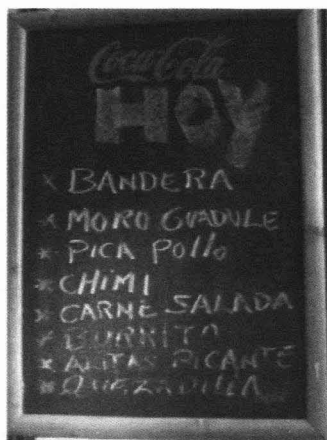 Coca-Cola
HOY
× BANDERA
× MORO GUADULE
× PICA POLLO
× CHIMI
× CARNE SALADA
× BURRITO
× ALITAS PICANTE
× QUEZADILLA